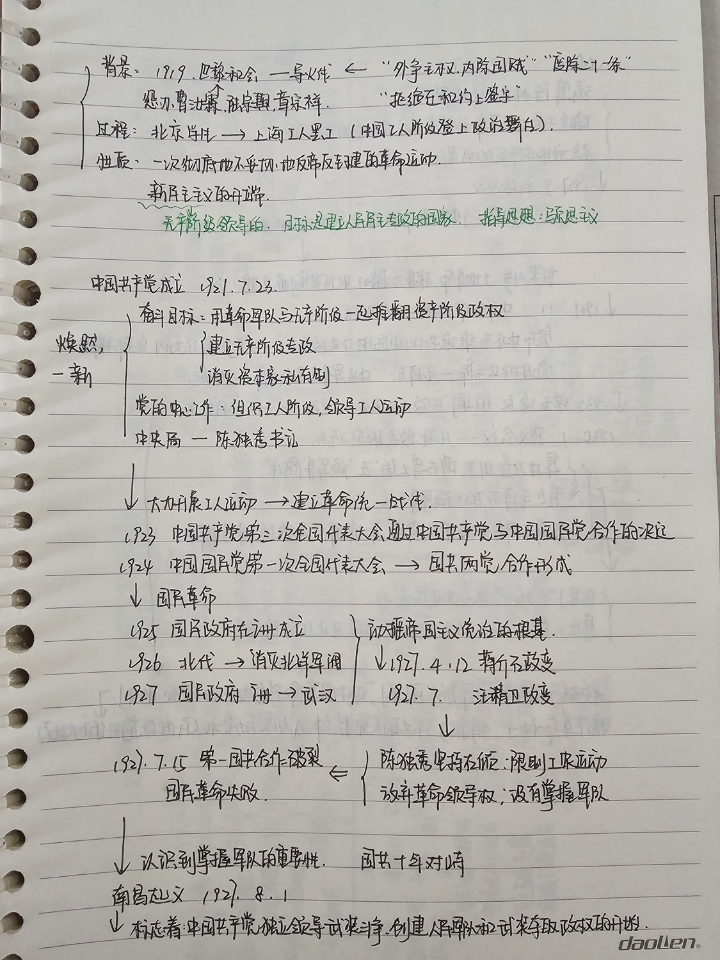 背景：1919.巴黎和会 — 导火线 ← "外争主权,内除国贼" "废除二十一条"
惩办曹汝霖,陆宗舆,章宗祥. "拒绝在和约上签字"
过程：北京学生 → 上海工人罢工 (中国工人阶级登上政治舞台).
性质：一次彻底地不妥协地反帝反封建的革命运动.
新民主主义的开端.
无产阶级领导的. 目标是建立人民民主专政的国家. 指导思想：马思主义
中国共产党成立 1921.7.23.
奋斗目标：用革命军队与无产阶级一起推翻资产阶级政权
焕然一新
建立无产阶级专政
消灭资本家私有制
党的中心工作：组织工人阶级,领导工人运动
中央局 — 陈独秀书记
↓ 大力开展工人运动 → 建立革命统一战线.
1923 中国共产党第三次全国代表大会通过中国共产党与中国国民党合作的决定
1924 中国国民党第一次全国代表大会 → 国共两党合作形成
↓ 国民革命
1925 国民政府在广州成立 动摇帝国主义统治的根基.
1926 北伐 → 消灭北洋军阀 ↓ 1927.4.12 蒋介石政变
1927 国民政府 广州 → 武汉 1927.7. 汪精卫政变
↓
1927.7.15 第一国共合作破裂 ⇐ 陈独秀坚持右倾：限制工农运动
国民革命失败. 放弃革命领导权；没有掌握军队
↓ 认识到掌握军队的重要性. 国共十年对峙
南昌起义 1927.8.1
↓ 标志着：中国共产党独立领导武装斗争,创建人民军队和武装夺取政权的开始.
daolien®